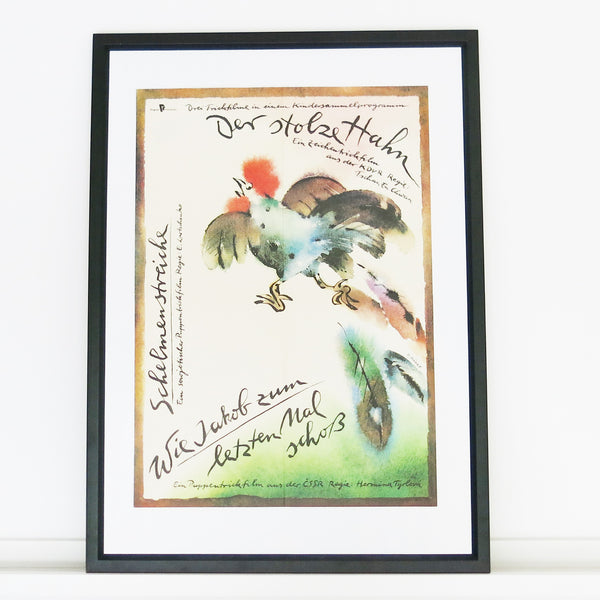 P
Drei Trickfilme in einem Kindersammelprogramm
Der stolze Hahn
Ein Zeichentrickfilm
aus der KDVR Regie:
Schelmenstreiche
Ein sowjetischer Puppentrickfilm Regie
Wie Jakob zum
letzten Mal
schoß
Ein Puppentrickfilm aus der ČSSR Regie: Hermina Tyrlova